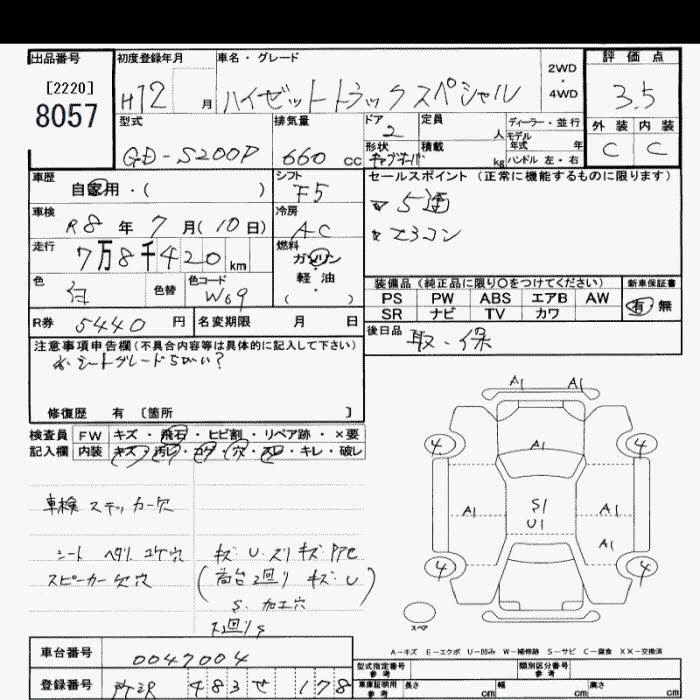 出品番号 初度登録年月 車名・グレード 評価点
[2220]
8057
H12 月 ハイゼットトラックスペシャル 2WD・4WD 3.5
型式 排気量 ドア 定員 ディーラー・並行 外装 内装
GD-S200P 660 cc 2 人 モデル年式 年 C C
形状 積載 kg ハンドル 左・右
車歴 シフト セールスポイント(正常に機能するものに限ります)
自家用・( ) F5 5速
車検 冷房
R8年7月(10日) AC エアコン
走行 燃料
7万8千420km ガソリン・軽油・( )
色 色替 色コード 装備品(純正品に限り〇をつけてください) 新車保証書
白 W09 PS PW ABS エアB AW 有 無
SR ナビ TV カワ
R券 5440円 名変期限 月 日 後日品 取・保
注意事項申告欄(不具合内容等は具体的に記入して下さい)
シートグレードちがい?
修復歴 有〔箇所 〕
検査員 FW キズ・飛石・ヒビ割・リペア跡・×要
記入欄 内装 キズ・汚レ・コゲ・穴・スレ・キレ・破レ
A1 A1
4 A1 4
A1 S1 U1 A1
A1
4 4
スペア
車検ステッカー穴
シート ヘタリ コゲ穴 キズ U スリキズ
スピーカー欠穴 (荷台回り キズ U)
S. 加工穴
下回りS
A−キズ E−エクボ U−凹み W−補修跡 S−サビ C−腐食 XX−交換済
車台番号 0047004
型式指定番号 参考 類別区分番号 参考
登録番号 所沢 483 せ 178
車庫証明用 参考 長さ cm 幅 cm 高さ cm